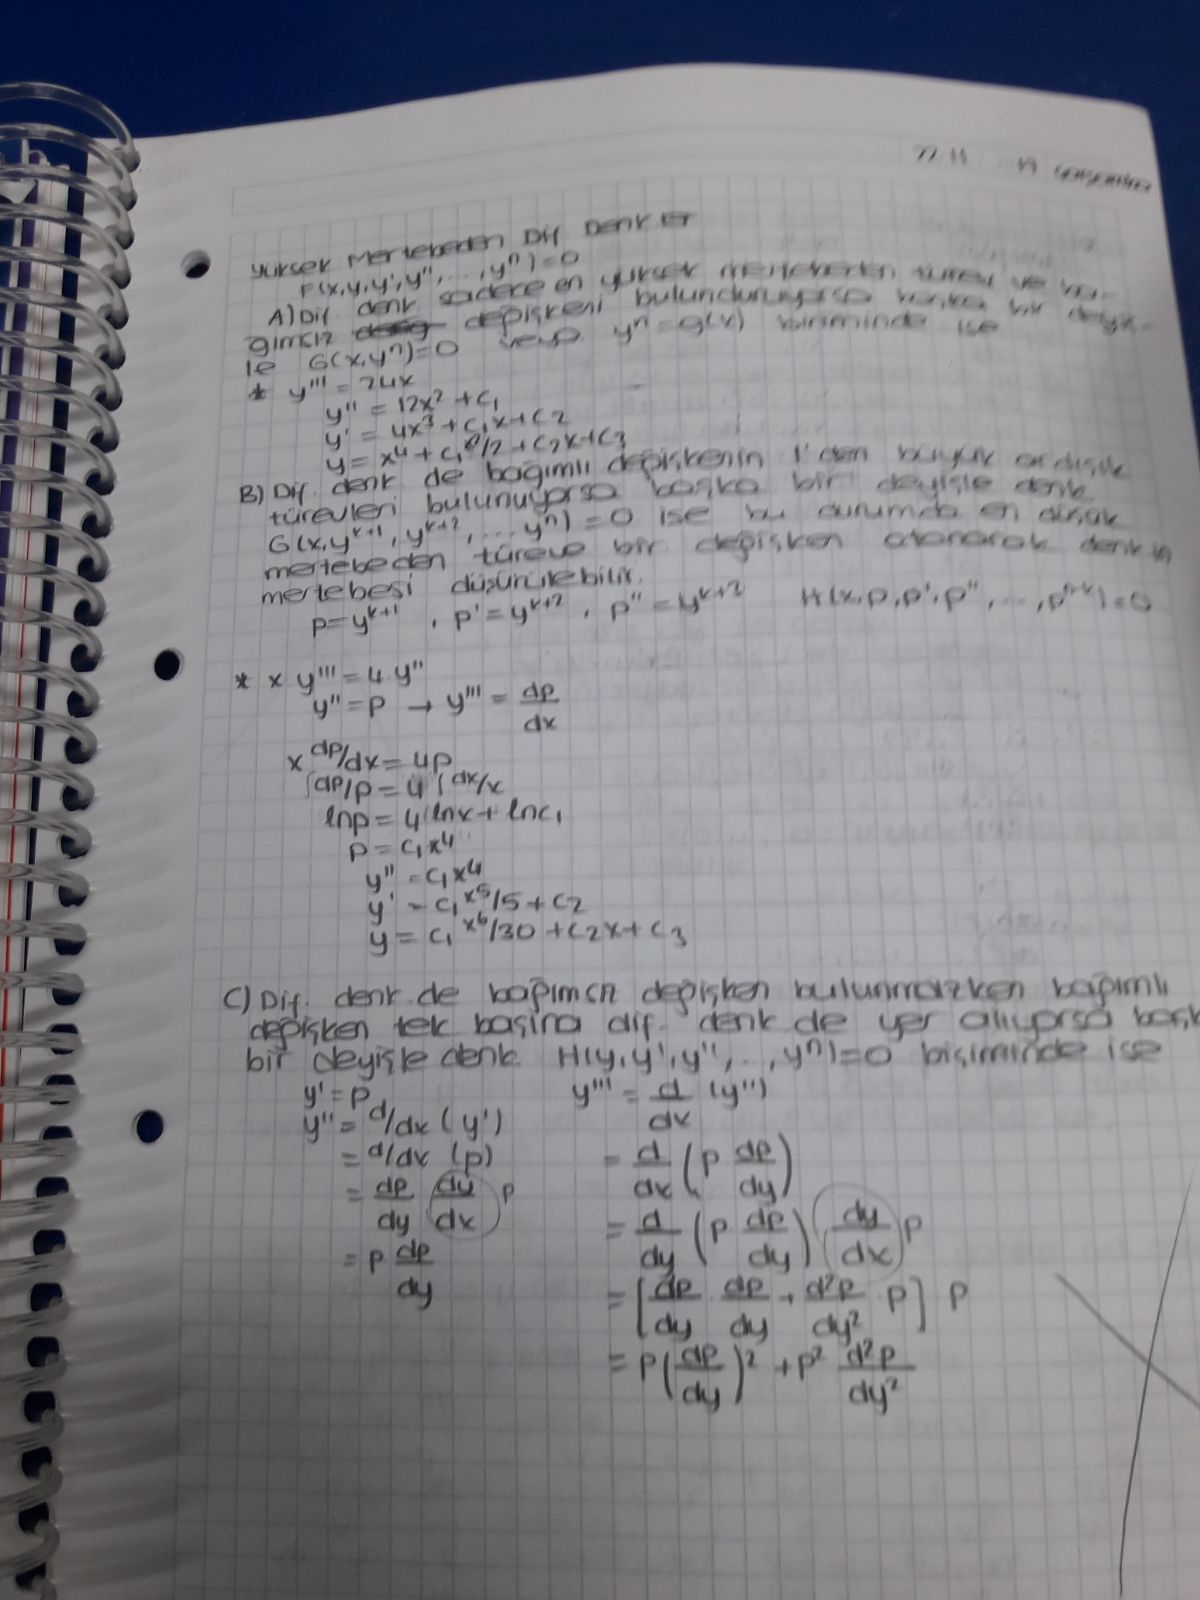 22.11 19 Çarşamba
Yüksek Mertebeden Dif Denkler
F(x,y,y',y'',...,yⁿ)=0
A) Dif denk sadece en yüksek mertebeden türev ve ba-
ğımsız değişkeni bulunduruyorsa başka bir deyiş-
le G(x,yⁿ)=0 veya yⁿ=g(x) biçiminde ise
* y'''=24x
y''=12x²+c₁
y'=4x³+c₁x+c₂
y=x⁴+c₁ /2+c₂x+c₃
B) Dif. denk de bağımlı değişkenin 1'den büyük ardışık
türevleri bulunuyorsa başka bir deyişle denk
G(x,yᵏ⁺¹,yᵏ⁺²,...yⁿ)=0 ise bu durumda en düşük
mertebeden türeve bir değişken atanarak denk in
mertebesi düşürülebilir.
p=yᵏ⁺¹, p'=yᵏ⁺², p''=yᵏ⁺² H(x,p,p',p'',...,pⁿ⁻ᵏ)=0
* x y'''=4.y''
y''=p → y'''=dp/dx
x dp/dx=4p
∫dp/p=4∫dx/x
lnp=4lnx+lnc₁
p=c₁x⁴
y''=c₁x⁴
y'=c₁x⁵/5+c₂
y=c₁x⁶/30+c₂x+c₃
C) Dif. denk de bağımsız değişken bulunmazken bağımlı
değişken tek başına dif. denk de yer alıyorsa başk
bir deyişle denk H(y,y',y'',...,yⁿ)=0 biçiminde ise
y'=p y'''=d/dx (y'')
y''=d/dx (y')
=d/dx (p) =d/dx (p dp/dy)
=dp/dy (dy/dx) p =d/dy (p dp/dy) (dy/dx) p
=p dp/dy =[dp/dy dp/dy + d²p/dy² p] p
=p(dp/dy)²+p² d²p/dy²